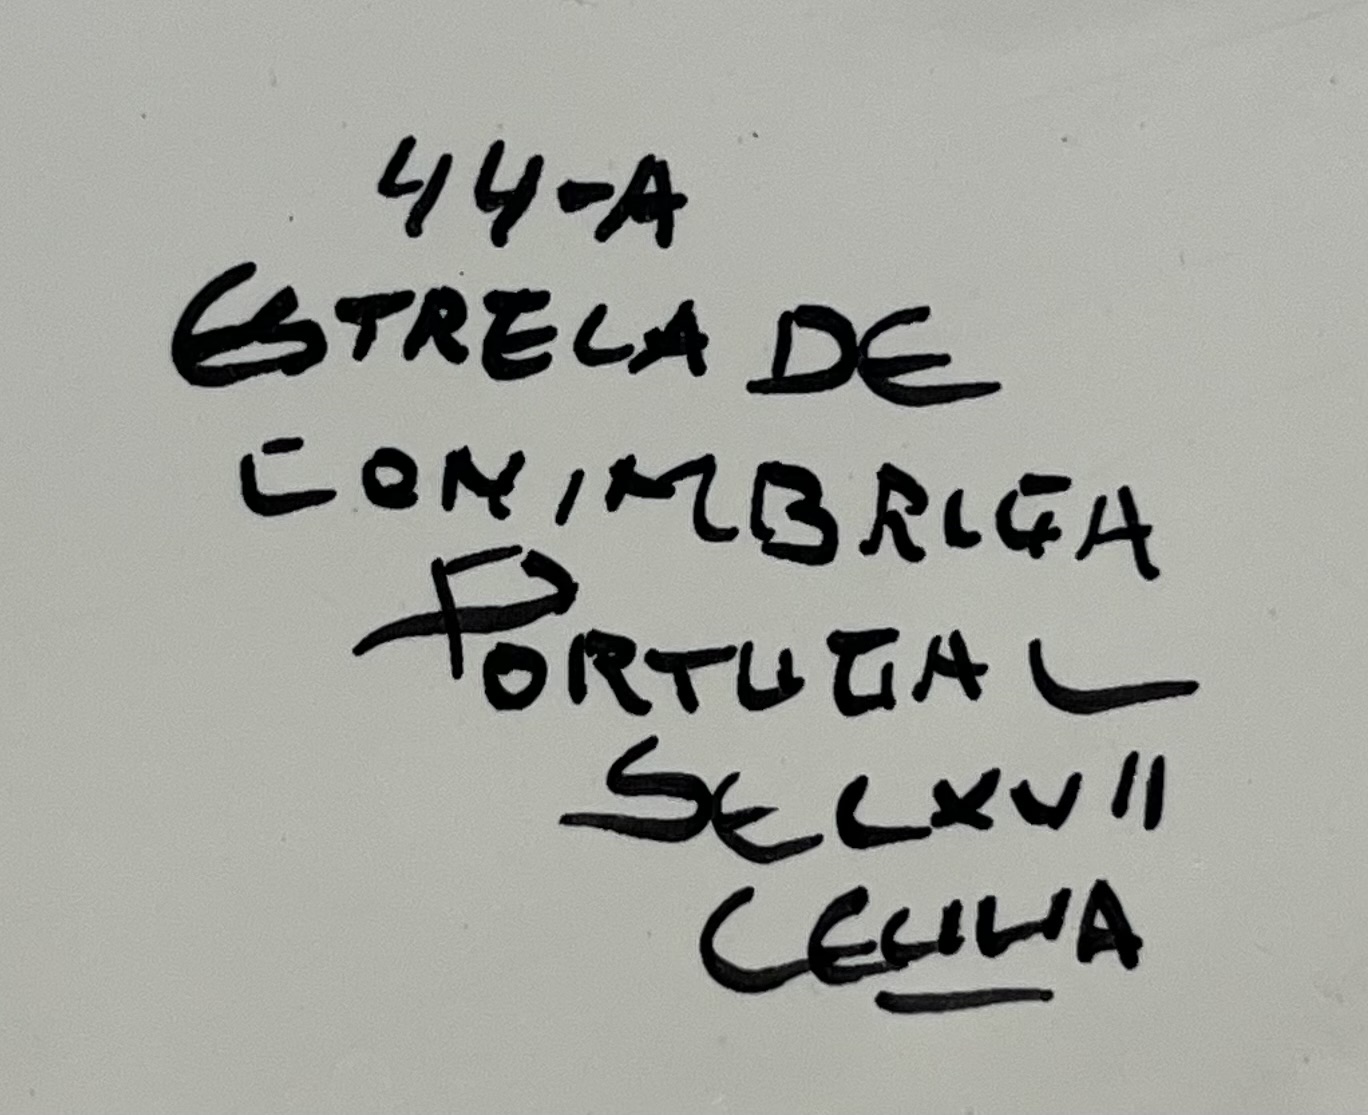 44-A
ESTRELA DE
CONIMBRIGA
PORTUGAL
SEC XVII
CECILIA